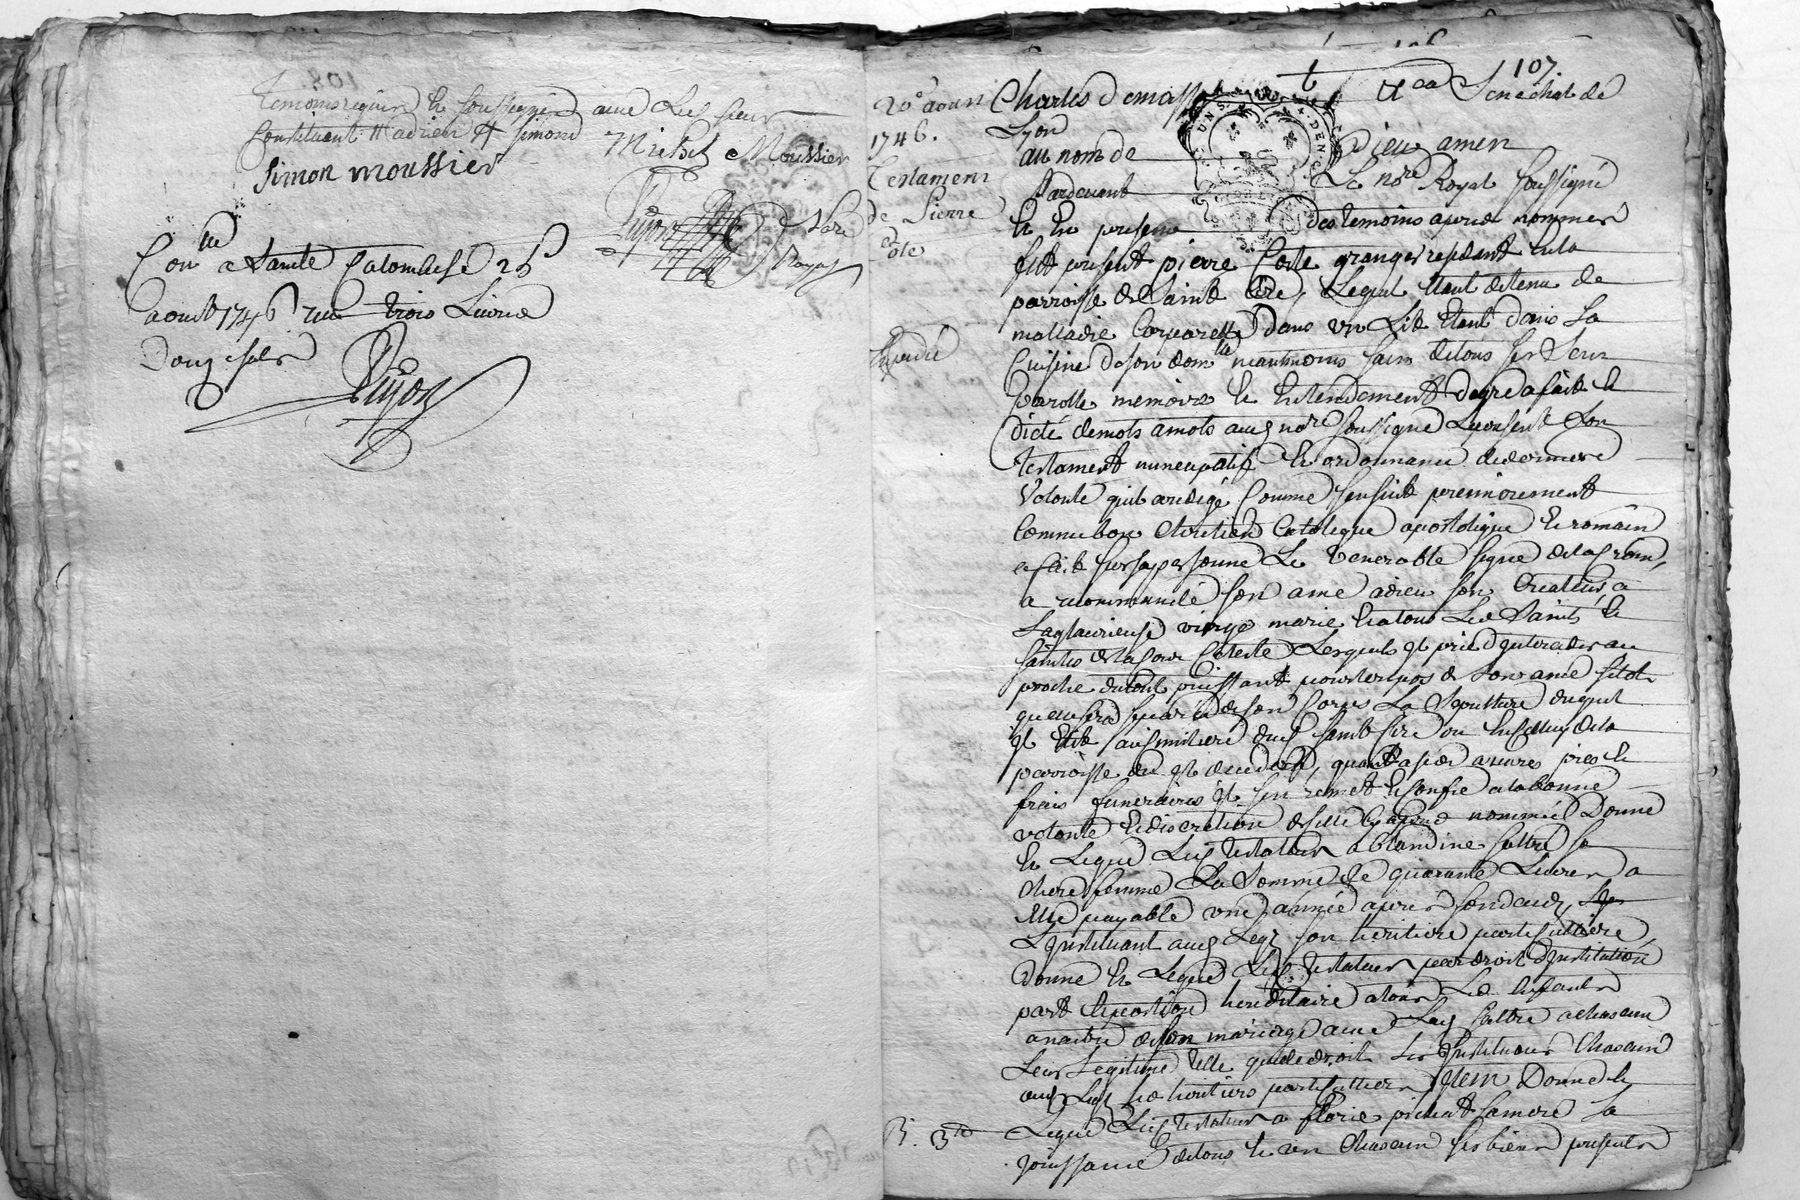 temoins requis et soussignés avec les sieurs
Constituant Simond
Simon moussier
Michel Moussier
Dujon
Nore
Royal
Con^lle a Sainte Colombe le 25
aoust 1746 reçu trois Livres
Douze sols
Dujon
107
20^e aoust
1746.
Testament
de Pierre
Coste
Expedié
Charles Demass Senechal de
Lyon
au nom de Dieu amen
Pardevant Le no^re Royal soussigné
et en presence des temoins apres nommés
fut present pierre Coste granger residant en la
parroisse de Saint Cire, Lequel etant detenu de
malladie Corporelle dans un Lit etant dans La
Cuisine de son dom^lle neantmoins sain de tous ses sens
parolle memoire et entendement de gré a fait et
dicté de mots a mots aud no^re soussigné Le present son
testament nuncupatif et ordonnance de derniere
Volonté quil a redigé Comme sensuit premierement
Comme bon Chretien Catolique apostolique et romain
a fait sur sa personne Le Venerable signe de la Croix,
a recommandé son ame a dieu son Createur, a
La glorieuse vierge marie et a tous Les Saints et
saintes de la Cour Celeste Lesquels il prie dinterceder au
proche du tout puissant pour le repos de son ame sitot
quelle sera separée de son Corps La Sepulture duquel
il elit au simitiere dud Saint Cire ou en celluy de la
parroisse ou il decedera, quant a ses œuvres pies et
frais funeraires il sen remet et confie a la bonne
volonté et discretion de celle cy apres nommée Donne
et Legue Led testateur a blandine fattre sa
chere femme La Somme de quarante Livres a
elle payable une année apres son deces
L'Instituant aud Legt son heritiere particulliere,
Donne et Legue Led testateur par droit d'Institution
part et portion hereditaire a tous Les enfants
a naitre de son mariage avec Lad fattre a chascun
Leur Legitime telle que de droit Les Instituant Chascun
aud Legt ses heritiers particulliers Item Donne et
Legue Led testateur a florie pichat sa mere La
jouissance de tous et un Chascun ses biens presents